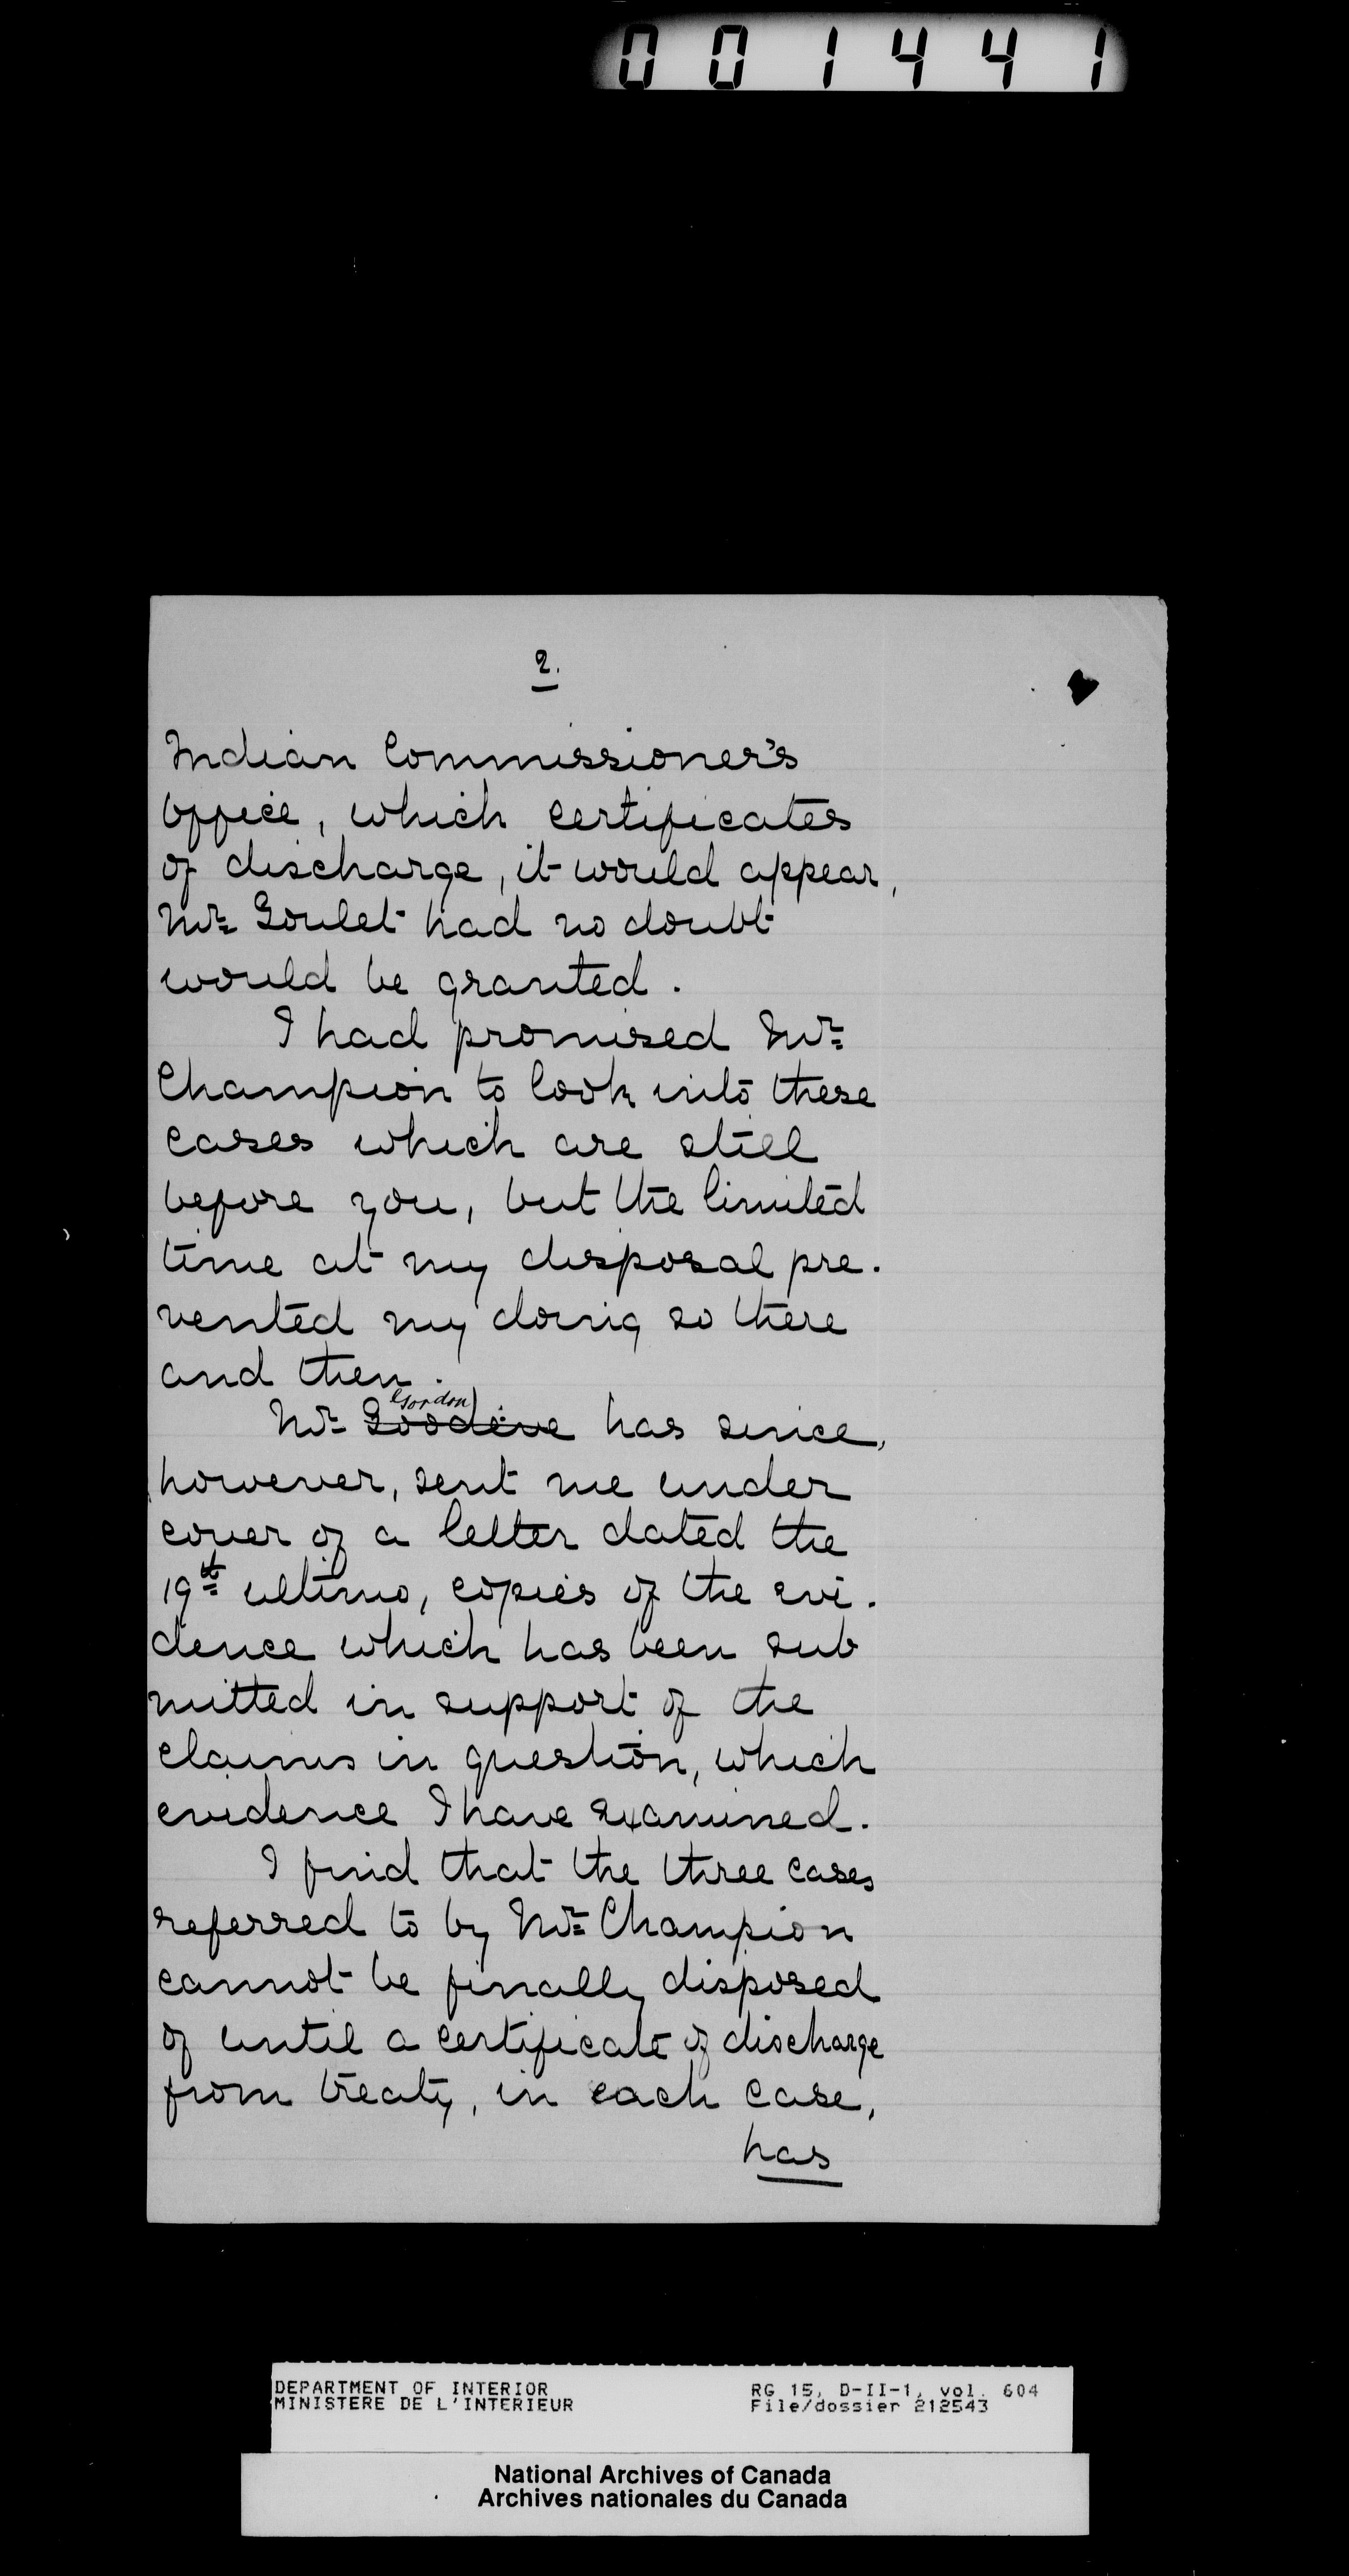 001441
2.
Indian Commissioner's
Office, which certificates
of discharge, it would appear,
Mr. Goulet had no doubt
would be granted.
I had promised Mr.
Champion to look into these
cases which are still
before you, but the limited
time at my disposal pre-
vented my doing so there
and then.
Gordon
Mr. Goodeve has since,
however, sent me under
cover of a letter dated the
19th ultimo, copies of the evi-
dence which has been sub
mitted in support of the
claims in question, which
evidence I have examined.
I find that the three cases
referred to by Mr. Champion
cannot be finally disposed
of until a certificate of discharge
from treaty, in each case,
has
DEPARTMENT OF INTERIOR
MINISTERE DE L'INTERIEUR
RG 15, D-II-1, vol. 604
File/dossier 212543
National Archives of Canada
Archives nationales du Canada